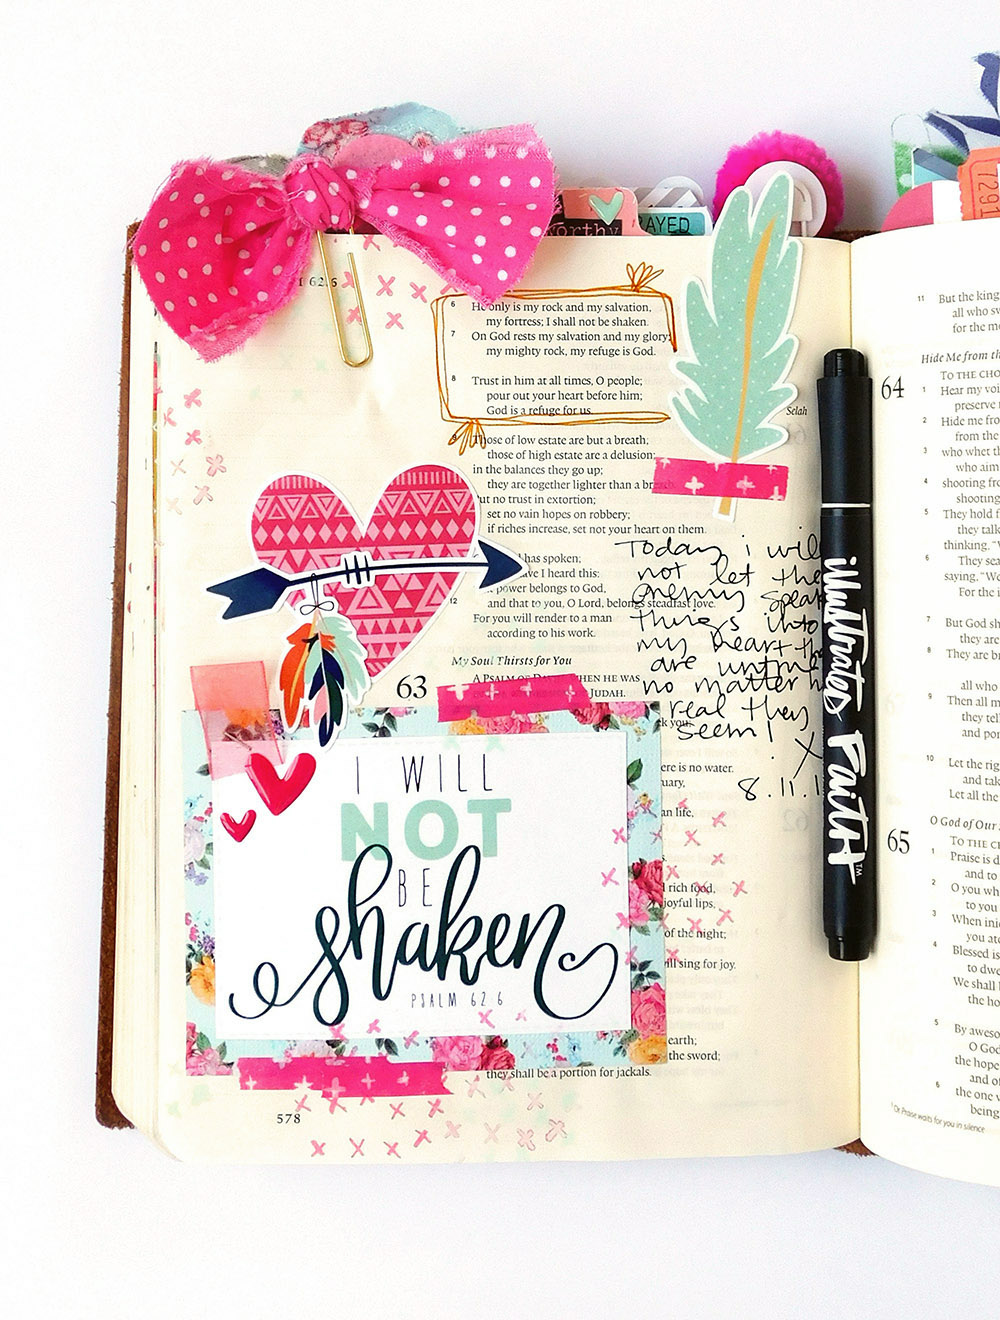 worthy
RAYED
7291
62:6
6 He only is my rock and my salvation,
my fortress; I shall not be shaken.
7 On God rests my salvation and my glory;
my mighty rock, my refuge is God.
8 Trust in him at all times, O people;
pour out your heart before him;
God is a refuge for us.
Selah
9 Those of low estate are but a breath;
those of high estate are a delusion;
in the balances they go up;
they are together lighter than a breath.
but no trust in extortion;
set no vain hopes on robbery;
if riches increase, set not your heart on them.
has spoken;
have I heard this:
power belongs to God,
12 and that to you, O Lord, belongs steadfast love.
For you will render to a man
according to his work.
My Soul Thirsts for You
63
A PSALM OF DAVID, WHEN HE WAS
JUDAH.
Today i will
not let the
enemy speak
things into
my heart tha
are untrue
no matter h
real they
seem!
X
8.11.1
you;
ere is no water.
uary,
an life,
rich food,
joyful lips,
of the night;
will sing for joy.
earth;
the sword;
they shall be a portion for jackals.
I WILL
NOT
BE
shaken
PSALM 62:6
578
illustrated FAITH™
11 But the king
all who sw
for the m
Hide Me from th
64
TO THE CHO
1 Hear my voi
preserve m
2 Hide me fro
from the
3 who whet th
who aim
4 shooting fro
shooting
5 They hold f
they talk
thinking, "W
6 They sea
saying, "We
For the i
7 But God sh
they are
8 They are br
all who
9 Then all m
they tell
and pon
10 Let the rig
and tak
Let all the
O God of Our
65
TO THE CHO
1 Praise is d
and to
2 O you wh
to you
3 When iniq
you ato
4 Blessed is
to dwe
We shall b
the ho
5 By aweso
O God
the hope
and of
6 the one w
being
1 Or Praise waits for you in silence